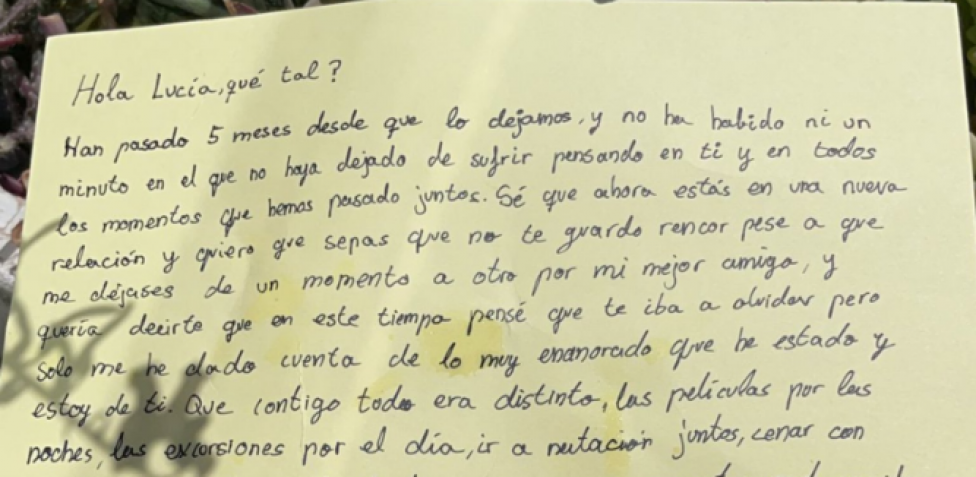 Hola Lucía, qué tal?
Han pasado 5 meses desde que lo dejamos, y no ha habido ni un
minuto en el que no haya dejado de sufrir pensando en ti y en todos
los momentos que hemos pasado juntos. Sé que ahora estás en una nueva
relación y quiero que sepas que no te guardo rencor pese a que
me dejases de un momento a otro por mi mejor amigo, y
quería decirte que en este tiempo pensé que te iba a olvidar pero
solo me he dado cuenta de lo muy enamorado que he estado y
estoy de ti. Que contigo todo era distinto, las películas por las
noches, las excursiones por el día, ir a natación juntos, cenar con